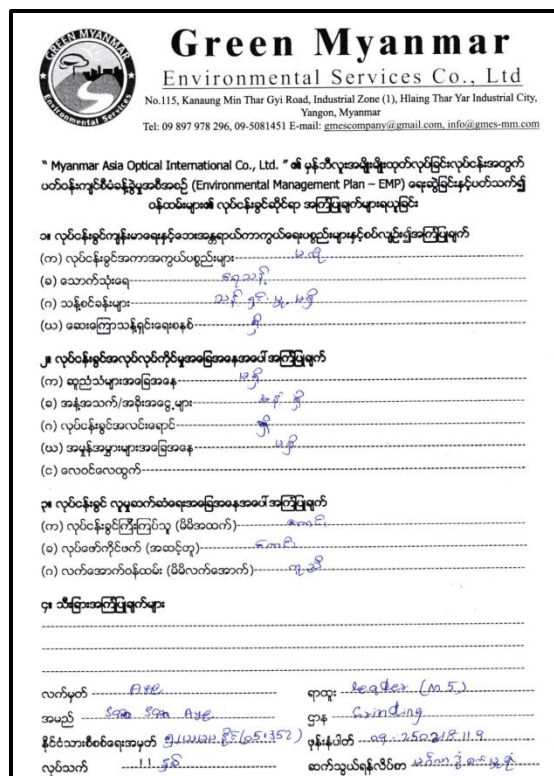 GREEN MYANMAR
Environmental Services
Green Myanmar
Environmental Services Co., Ltd
No.115, Kanaung Min Thar Gyi Road, Industrial Zone (1), Hlaing Thar Yar Industrial City,
Yangon, Myanmar
Tel: 09 897 978 296, 09-5081451 E-mail: gmescompany@gmail.com, info@gmes-mm.com
" Myanmar Asia Optical International Co., Ltd. " ၏ မှန်ဘီလူးအမျိုးမျိုးထုတ်လုပ်ခြင်းလုပ်ငန်းအတွက်
ပတ်ဝန်းကျင်စီမံခန့်ခွဲမှုအစီအစဉ် (Environmental Management Plan – EMP) ရေးဆွဲခြင်းနှင့်ပတ်သက်၍
ဝန်ထမ်းများ၏ လုပ်ငန်းခွင်ဆိုင်ရာ အကြံပြုချက်များရယူခြင်း
၁။ လုပ်ငန်းခွင်ကျန်းမာရေးနှင့်ဘေးအန္တရာယ်ကာကွယ်ရေးပစ္စည်းများနှင့်စပ်လျဉ်း၍အကြံပြုချက်
(က) လုပ်ငန်းခွင်အကာအကွယ်ပစ္စည်းများ
(ခ) သောက်သုံးရေ ရေသန့်
(ဂ) သန့်စင်ခန်းများ သန့်ရှင်းမှု မရှိ
(ဃ) ဆေးကြောသန့်ရှင်းရေးစနစ် ရှိ
၂။ လုပ်ငန်းခွင်အလုပ်လုပ်ကိုင်မှုအခြေအနေအပေါ် အကြံပြုချက်
(က) ဆူညံသံများအခြေအနေ မရှိ
(ခ) အနံ့အသက်/အခိုးအငွေ့များ အနံ့ ရှိ
(ဂ) လုပ်ငန်းခွင်အလင်းရောင် ရှိ
(ဃ) အမှုန်အမွှားများအခြေအနေ မရှိ
(င) လေဝင်လေထွက်
၃။ လုပ်ငန်းခွင် လူမှုဆက်ဆံရေးအခြေအနေအပေါ် အကြံပြုချက်
(က) လုပ်ငန်းခွင်ကြီးကြပ်သူ (မိမိအထက်) ကောင်း
(ခ) လုပ်ဖော်ကိုင်ဖက် (အဆင့်တူ) ကောင်း
(ဂ) လက်အောက်ဝန်ထမ်း (မိမိလက်အောက်) ကူညီ
၄။ သီးခြားအကြံပြုချက်များ
လက်မှတ် Aye ရာထူး leader (M5)
အမည် San San Aye ဌာန Grinding
နိုင်ငံသားစိစစ်ရေးအမှတ် ဖုန်းနံပါတ် 09-250218119
လုပ်သက် 11 နှစ် ဆက်သွယ်ရန်လိပ်စာ